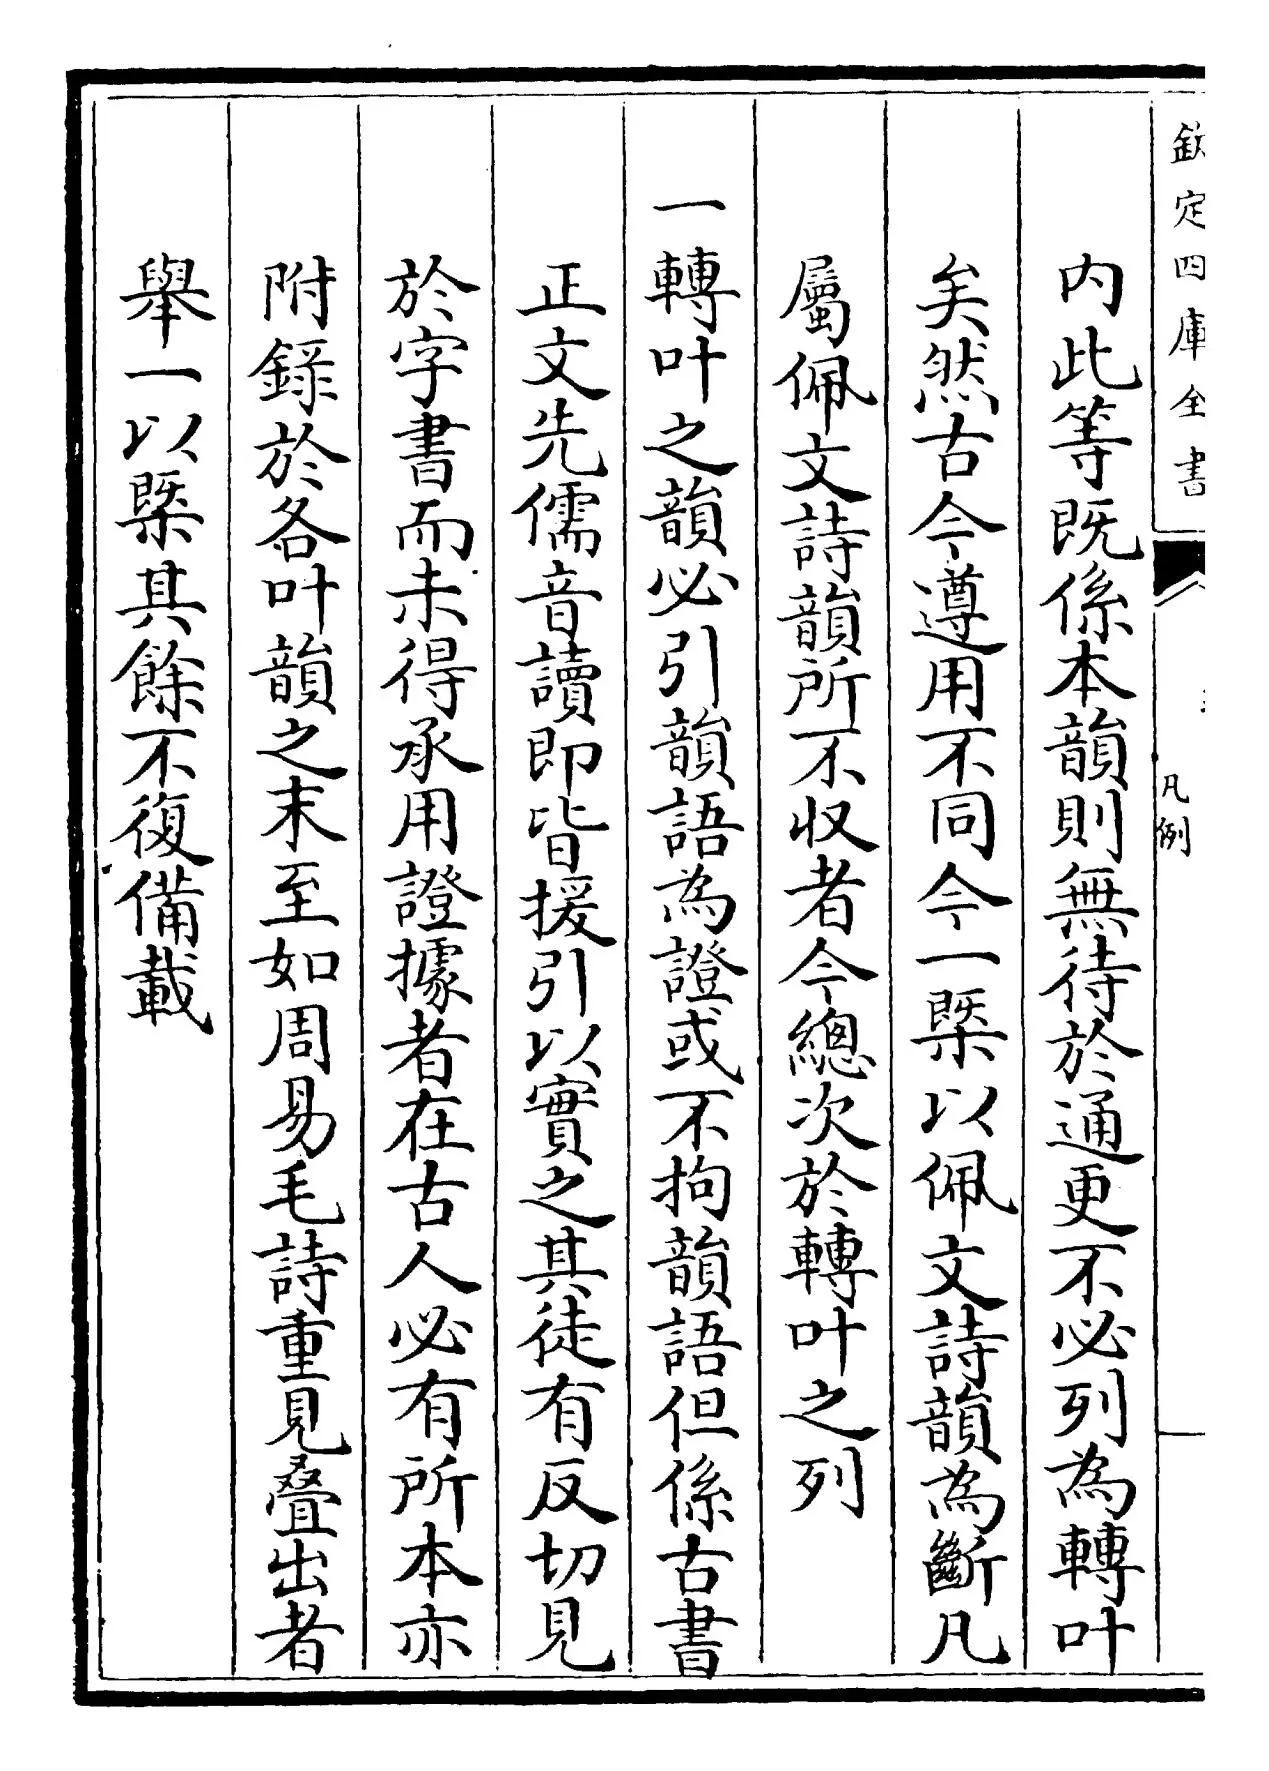 欽定四庫全書
凡例
内此等既係本韻則無待於通更不必列為轉叶
矣然古今遵用不同今一槩以佩文詩韻為斷凡
屬佩文詩韻所不收者今總次於轉叶之列
一轉叶之韻必引韻語為證或不拘韻語但係古書
正文先儒音讀即皆援引以實之其徒有反切見
於字書而未得承用證據者在古人必有所本亦
附錄於各叶韻之末至如周易毛詩重見疊出者
舉一以槩其餘不復備載